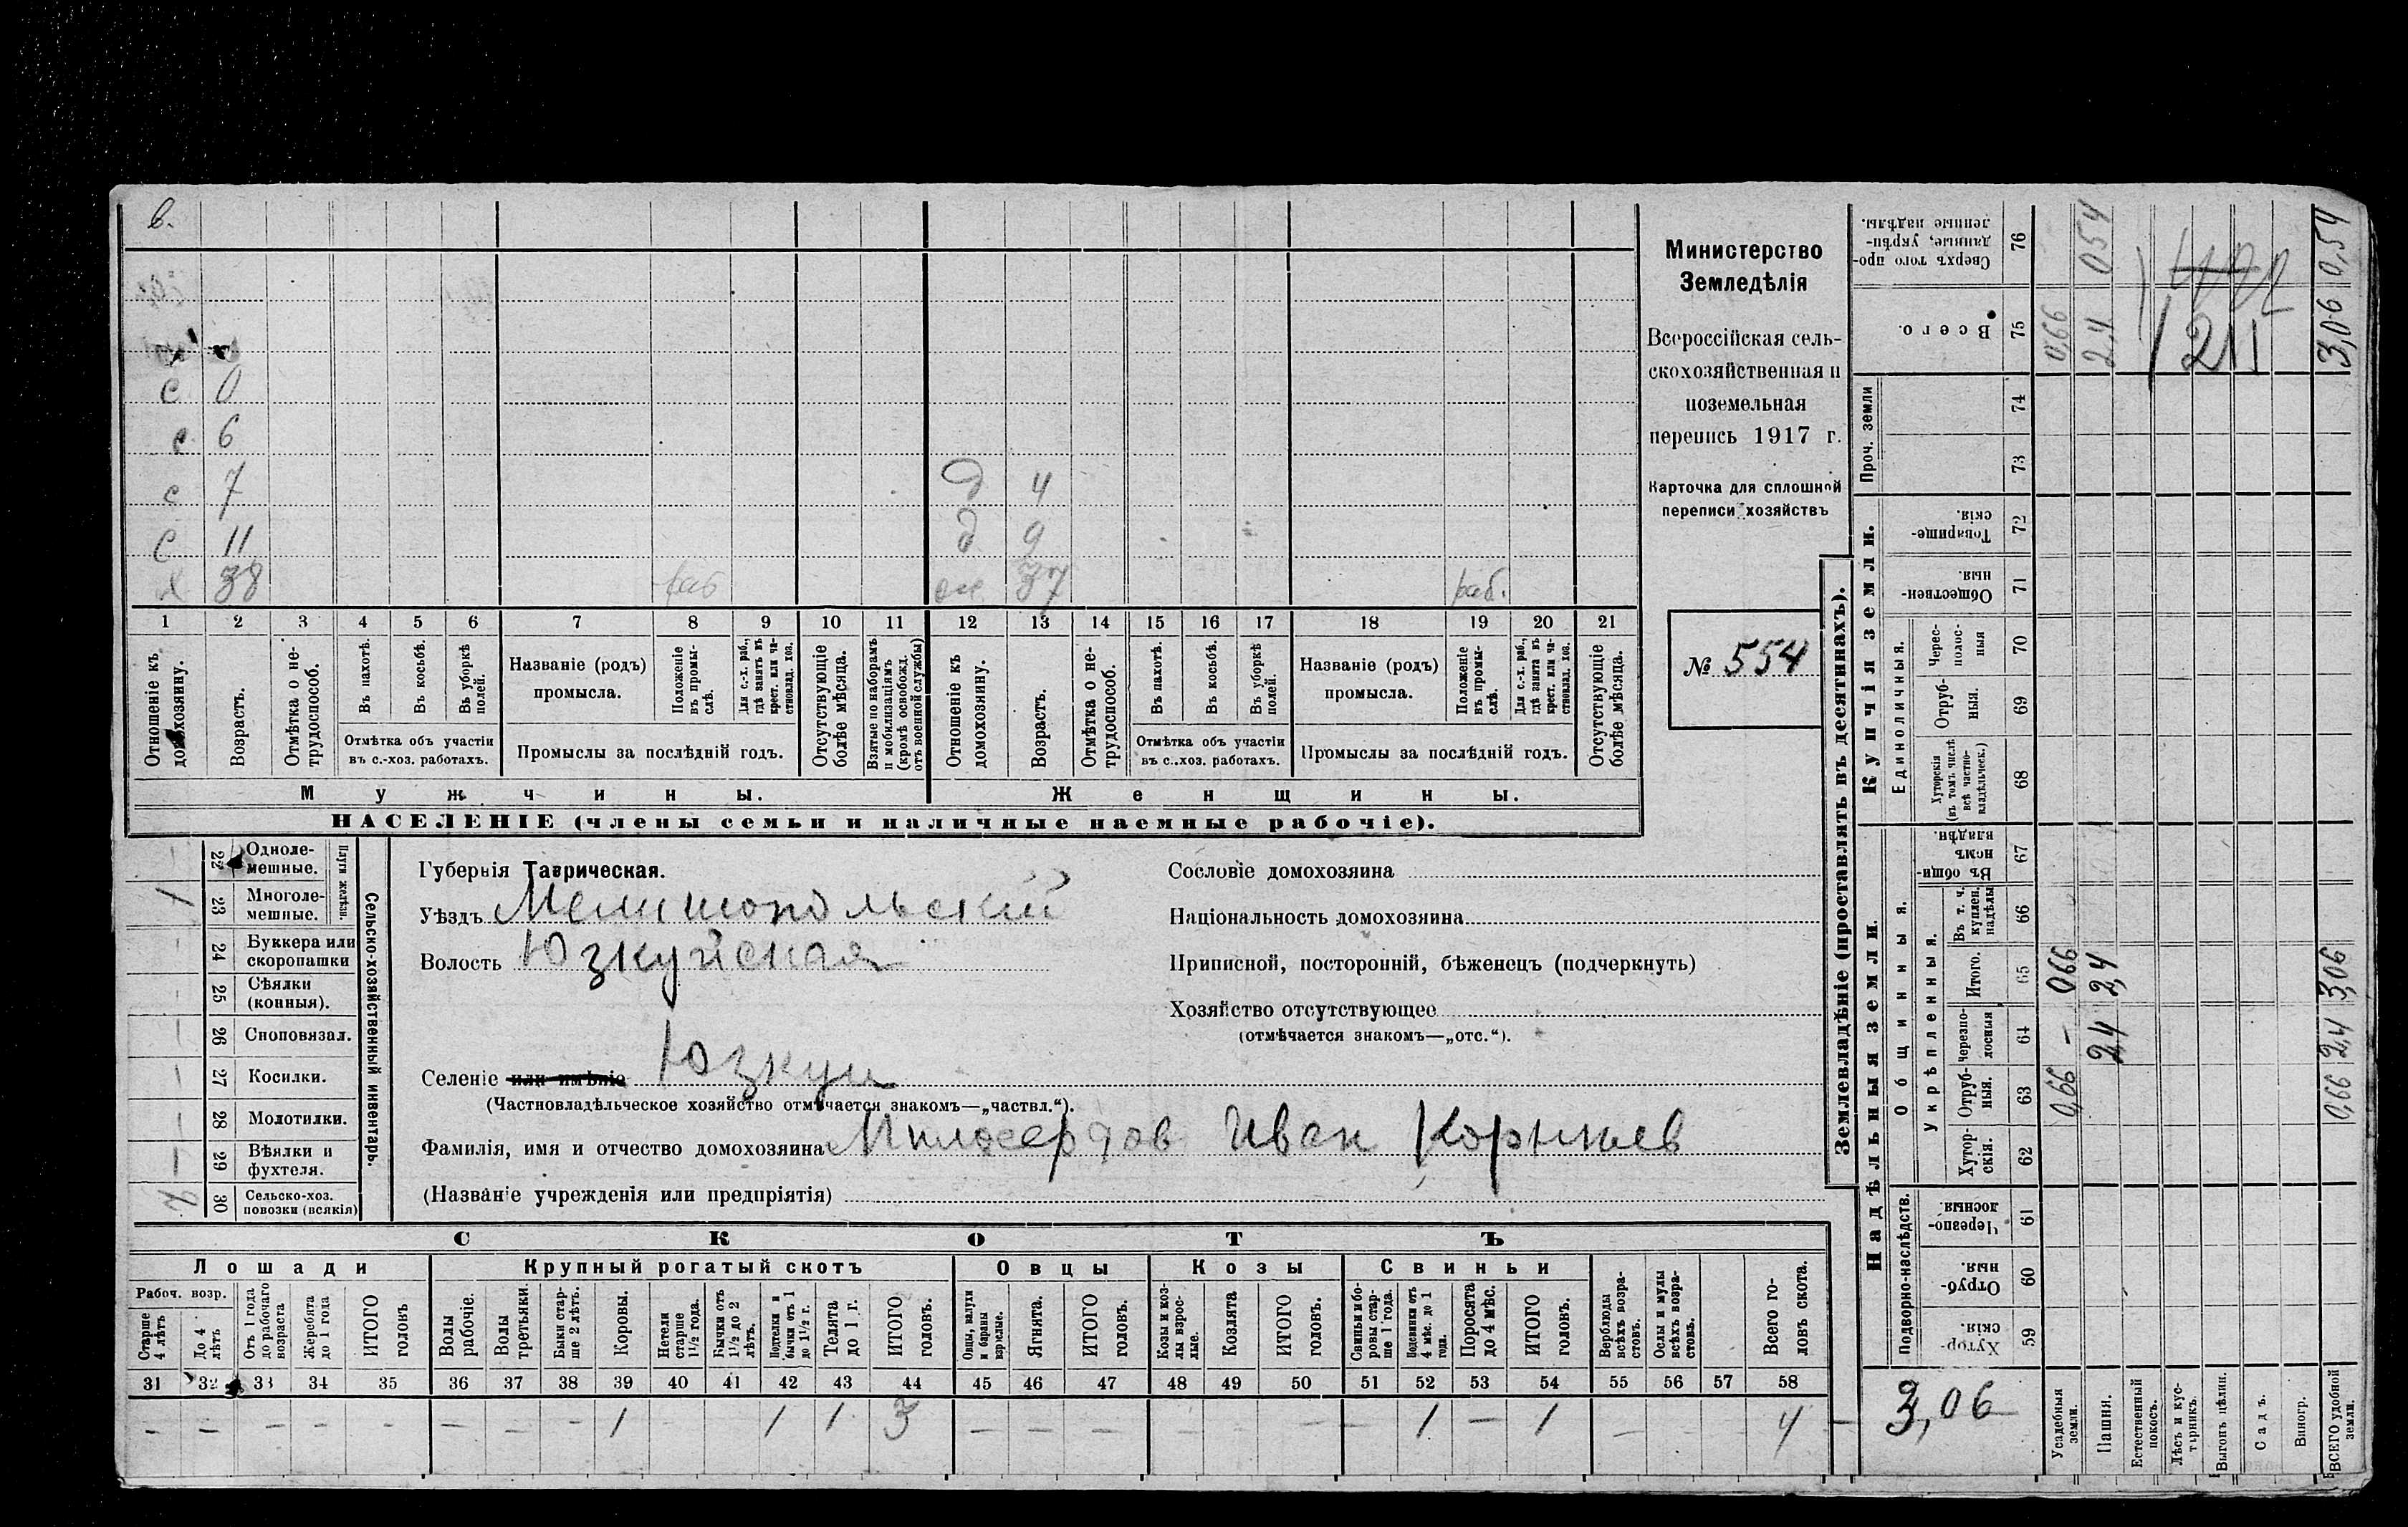 в.
с 0
с 6
с 7 д 4
с 11 д 9
х 38 раб ж 37 раб.
1 2 3 4 5 6 7 8 9 10 11 12 13 14 15 16 17 18 19 20 21
Отношеніе къ домохозяину.
Возрастъ.
Отмѣтка о не-трудоспособ.
Въ пахотѣ.
Въ косьбѣ.
Въ уборкѣ полей.
Отмѣтка объ участіи въ с.-хоз. работахъ.
Названіе (родъ) промысла.
Положеніе въ промы-слѣ.
Для с.-х. раб., гдѣ занятъ въ крест. или ча-стновлад. хоз.
Промыслы за послѣдній годъ.
Отсутствующіе болѣе мѣсяца.
Взятые по наборамъ и мобилизаціямъ (кромѣ освобожд. отъ военной службы)
Отношеніе къ домохозяину.
Возрастъ.
Отмѣтка о не-трудоспособ.
Въ пахотѣ.
Въ косьбѣ.
Въ уборкѣ полей.
Отмѣтка объ участіи въ с..хоз. работахъ.
Названіе (родъ) промысла.
Положеніе въ промы-слѣ.
Для с.-х. раб., гдѣ занятъ въ крест. или ча-стновлад. хоз.
Промыслы за послѣдній годъ.
Отсутствующіе болѣе мѣсяца.
Мужчины. Женщины.
НАСЕЛЕНІЕ (члены семьи и наличные наемные рабочіе).
Министерство
Земледѣлія
Всероссійская сель-
скохозяйственная и
поземельная
перепись 1917 г.
Карточка для сплошной
переписи хозяйствъ
№ 554
Сельско-хозяйственный инвентарь.
Плуги желѣзн.
— 22 Одноле-мешные.
1 23 Многоле-мешные.
— 24 Буккера или скоропашки
— 25 Сѣялки (конныя).
— 26 Сноповязал.
— 27 Косилки.
— 28 Молотилки.
— 29 Вѣялки и фухтеля.
30 Сельско-хоз. повозки (всякія)
Губернія Таврическая.
Уѣздъ Мелитопольскій
Волость Юзкуйская
Селеніе или имѣніе Юзкуи
(Частновладѣльческое хозяйство отмѣчается знакомъ—„частвл.“).
Фамилія, имя и отчество домохозяина Милосердов Иван Корниев
(Названіе учрежденія или предпріятія)
Сословіе домохозяина
Національность домохозяина
Приписной, посторонній, бѣженецъ (подчеркнуть)
Хозяйство отсутствующее
(отмѣчается знакомъ—„отс.“).
СКОТЪ
Лошади Крупный рогатый скотъ Овцы Козы Свиньи
Рабоч. возр.
Старше 4 лѣтъ
До 4 лѣтъ
Отъ 1 года до рабочаго возраста
Жеребята до 1 года
ИТОГО головъ
Волы рабочіе.
Волы третьяки.
Быки стар-ше 2 лѣтъ.
Коровы.
Нетели старше 1½ года.
Бычки отъ 1½ до 2 лѣтъ.
Подтелки и бычки отъ 1 до 1½ г.
Телята до 1 г.
ИТОГО головъ.
Овцы, валухи и бараны взрослые.
Ягнята.
ИТОГО головъ.
Козы и коз-лы взрос-лые.
Козлята
ИТОГО головъ.
Свиньи и бо-ровы стар-ше 1 года.
Подсвинки отъ 4 мѣс. до 1 года.
Поросята до 4 мѣс.
ИТОГО головъ.
Верблюды всѣхъ возра-стовъ.
Ослы и мулы всѣхъ возра-стовъ.
Всего го-ловъ скота.
31 32 33 34 35 36 37 38 39 40 41 42 43 44 45 46 47 48 49 50 51 52 53 54 55 56 57 58
— — — — — — — — 1 1 1 3 — — — — — 1 — 1 — — — 4
Землевладѣніе (проставлять въ десятинахъ).
Надѣльныя земли.
Купчія земли.
Проч. земли
Подворно-наслѣдств.
Общинныя.
Укрѣпленныя.
Единоличныя.
Хутор-скія. 59
Отруб-ныя. 60
Черезпо-лосныя 61
Хутор-скія. 62
Отруб-ныя. 63
Черезпо-лосныя 64
Итого. 65
Въ т. ч. куплен. надѣлы 66
Въ общи-номъ владѣн. 67
Хуторскія (въ томъ числѣ всѣ частно-владѣльческ.) 68
Отруб-ныя. 69
Черес-полос-ныя 70
Обществен-ныя. 71
Товарище-скія. 72
73
74
Всего. 75
Сверхъ того про-данные, укрѣп-ленные надѣлы. 76
3,06
Усадебныя земли. 0,66 — 066 0,66
Пашня. 2,4 2,4 2,4 054
Естественный покосъ.
Лѣсъ и кус-тарникъ.
Выгонъ цѣлин.
Садъ.
Виногр.
ВСЕГО удобной земли. 0,66 2,4 3,06 3,06 0,54